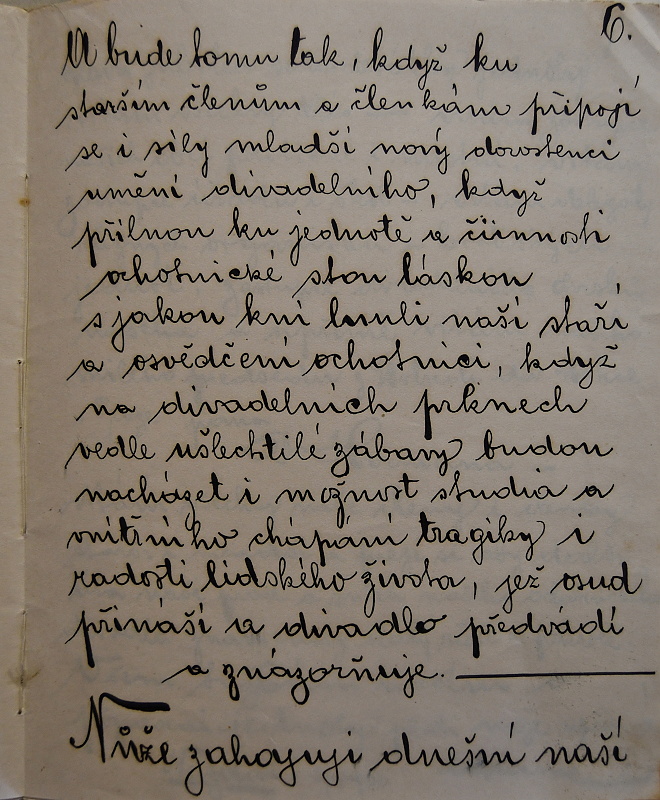 6.
A bude tomu tak, když ku
starším členům a členkám připojí
se i síly mladší nový dorostenci
umění divadelního, když
přilnou ku jednotě a činnosti
ochotnické stou láskou
s jakou kní lnuli naší staří
a osvědčení ochotnici, když
na divadelních prknech
vedle ušlechtilé zábavy budou
nacházet i možnost studia a
vnitřního chápání tragiky i
radosti lidského života, jež osud
přináší a divadlo předvádí
a znázorňuje.
Nůže zahajuji dnešní naší